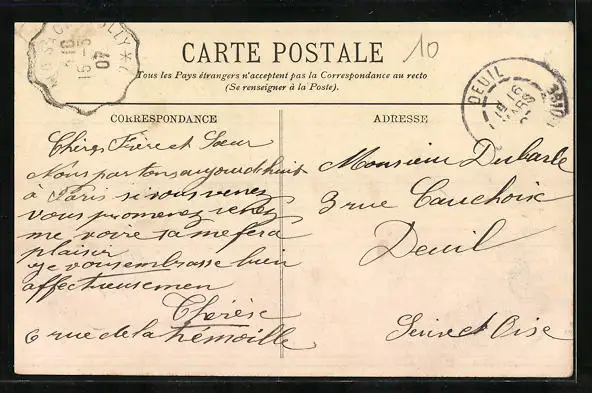 CARTE POSTALE
10
Tous les Pays étrangers n'acceptent pas la Correspondance au recto
(Se renseigner à la Poste).
CORRESPONDANCE
ADRESSE
DEUIL
15-5
07
Chères Frère et Sœur
Nous partons aujourdhuit
à Paris si vous venez
vous promenez venez
me voire sa me fera
plaisir
je vous embrasse bien
affectueusemen
Thérèse
6 rue de la trémoille
Monsieur Dubarle
3 rue Cauchoix
Deuil
Seine et Oise